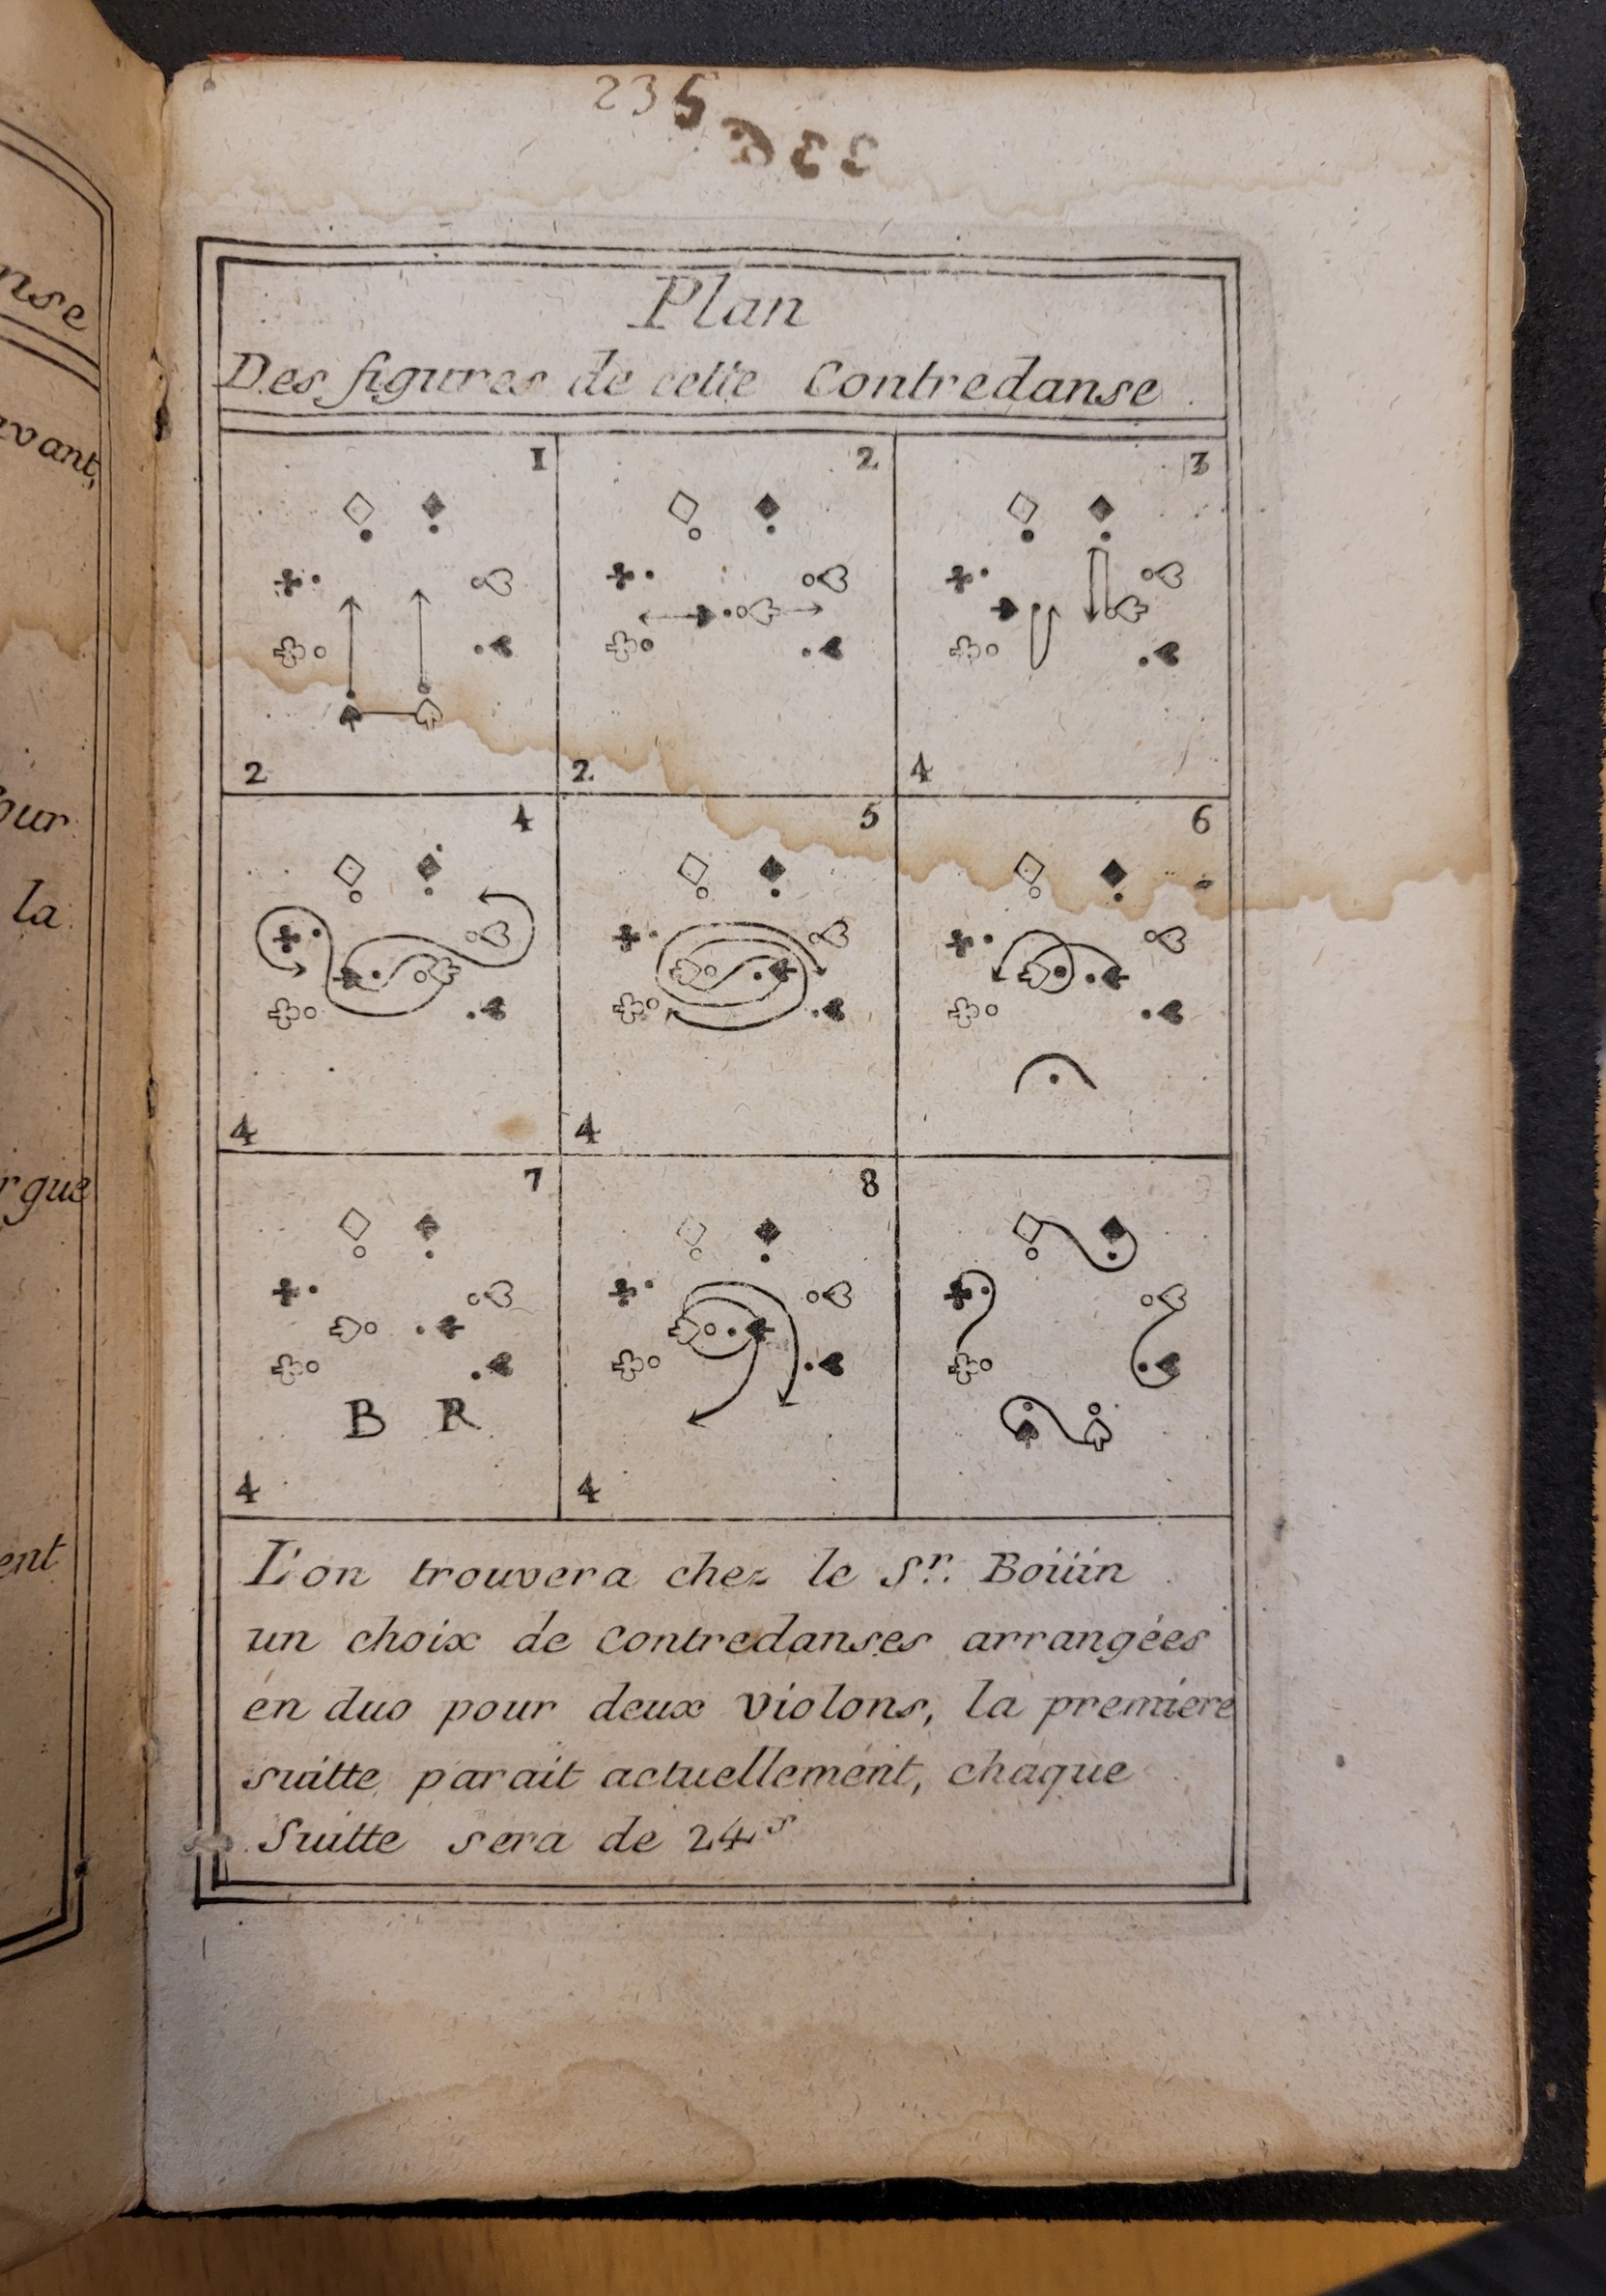 nse
avant,
our
la
rgue
ent
235
Plan
Des figures de cette Contredanse.
1 2 3
2 2. 4
4 5 6
4 4
7 8
B R
4 4
L'on trouvera chez le Sr. Boüin
un choix de Contredanses arrangées
en duo pour deux violons, la premiere
suitte parait actuellement, chaque
Suitte sera de 24s